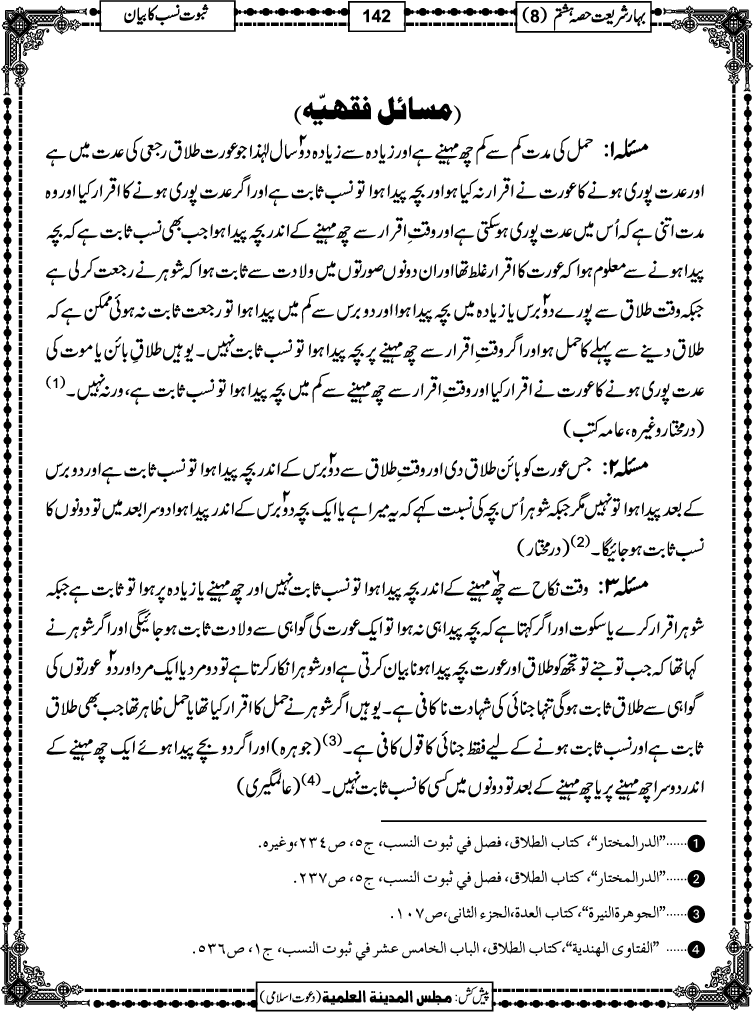 بہار شریعت حصہ ہشتم (8)
142
ثبوت نسب کا بیان
(مسائل فقهيّه)
مسئلہ ۱: حمل کی مدت کم سے کم چھ مہینے ہے اور زیادہ سے زیادہ دو۲ سال لہٰذا جو عورت طلاق رجعی کی عدت میں ہے
اور عدت پوری ہونے کا عورت نے اقرار نہ کیا ہو اور بچہ پیدا ہوا تو نسب ثابت ہے اور اگر عدت پوری ہونے کا اقرار کیا اور وہ
مدت اتنی ہے کہ اُس میں عدت پوری ہو سکتی ہے اور وقتِ اقرار سے چھ مہینے کے اندر بچہ پیدا ہوا جب بھی نسب ثابت ہے کہ بچہ
پیدا ہونے سے معلوم ہوا کہ عورت کا اقرار غلط تھا اور ان دونوں صورتوں میں ولادت سے ثابت ہوا کہ شوہر نے رجعت کر لی ہے
جبکہ وقت طلاق سے پورے دو۲ برس یا زیادہ میں بچہ پیدا ہوا اور دو برس سے کم میں پیدا ہوا تو رجعت ثابت نہ ہوئی ممکن ہے کہ
طلاق دینے سے پہلے کا حمل ہو اور اگر وقتِ اقرار سے چھ مہینے پر بچہ پیدا ہوا تو نسب ثابت نہیں۔ یوہیں طلاقِ بائن یا موت کی
عدت پوری ہونے کا عورت نے اقرار کیا اور وقتِ اقرار سے چھ مہینے سے کم میں بچہ پیدا ہوا تو نسب ثابت ہے، ورنہ نہیں۔(1)
(درمختار وغیرہ، عامہ کتب)
مسئلہ ۲: جس عورت کو بائن طلاق دی اور وقتِ طلاق سے دو۲ برس کے اندر بچہ پیدا ہوا تو نسب ثابت ہے اور دو برس
کے بعد پیدا ہوا تو نہیں مگر جبکہ شوہر اُس بچہ کی نسبت کہے کہ یہ میرا ہے یا ایک بچہ دو۲ برس کے اندر پیدا ہوا دوسرا بعد میں تو دونوں کا
نسب ثابت ہو جائیگا۔(2) (درمختار)
مسئلہ ۳: وقت نکاح سے چھ۶ مہینے کے اندر بچہ پیدا ہوا تو نسب ثابت نہیں اور چھ مہینے یا زیادہ پر ہوا تو ثابت ہے جبکہ
شوہر اقرار کرے یا سکوت اور اگر کہتا ہے کہ بچہ پیدا ہی نہ ہوا تو ایک عورت کی گواہی سے ولادت ثابت ہو جائیگی اور اگر شوہر نے
کہا تھا کہ جب تو جنے تو تجھ کو طلاق اور عورت بچہ پیدا ہونا بیان کرتی ہے اور شوہر انکار کرتا ہے تو دو مرد یا ایک مرد اور دو۲ عورتوں کی
گواہی سے طلاق ثابت ہوگی تنہا جنائی کی شہادت ناکافی ہے۔ یوہیں اگر شوہر نے حمل کا اقرار کیا تھا یا حمل ظاہر تھا جب بھی طلاق
ثابت ہے اور نسب ثابت ہونے کے لیے فقط جنائی کا قول کافی ہے۔(3) (جوہرہ) اور اگر دو بچے پیدا ہوئے ایک چھ مہینے کے
اندر دوسرا چھ مہینے پر یا چھ مہینے کے بعد تو دونوں میں کسی کا نسب ثابت نہیں۔(4) (عالمگیری)
1......”الدرالمختار“، كتاب الطلاق، فصل في ثبوت النسب، ج٥، ص٢٣٤، وغيره.
2......”الدرالمختار“، كتاب الطلاق، فصل في ثبوت النسب، ج٥، ص٢٣٧.
3......”الجوهرةالنيرة“، كتاب العدة، الجزء الثانى، ص١٠٧.
4...... ”الفتاوى الهندية“، كتاب الطلاق، الباب الخامس عشر في ثبوت النسب، ج١، ص٥٣٦.
پیش کش: مجلس المدينة العلمية (دعوت اسلامی)